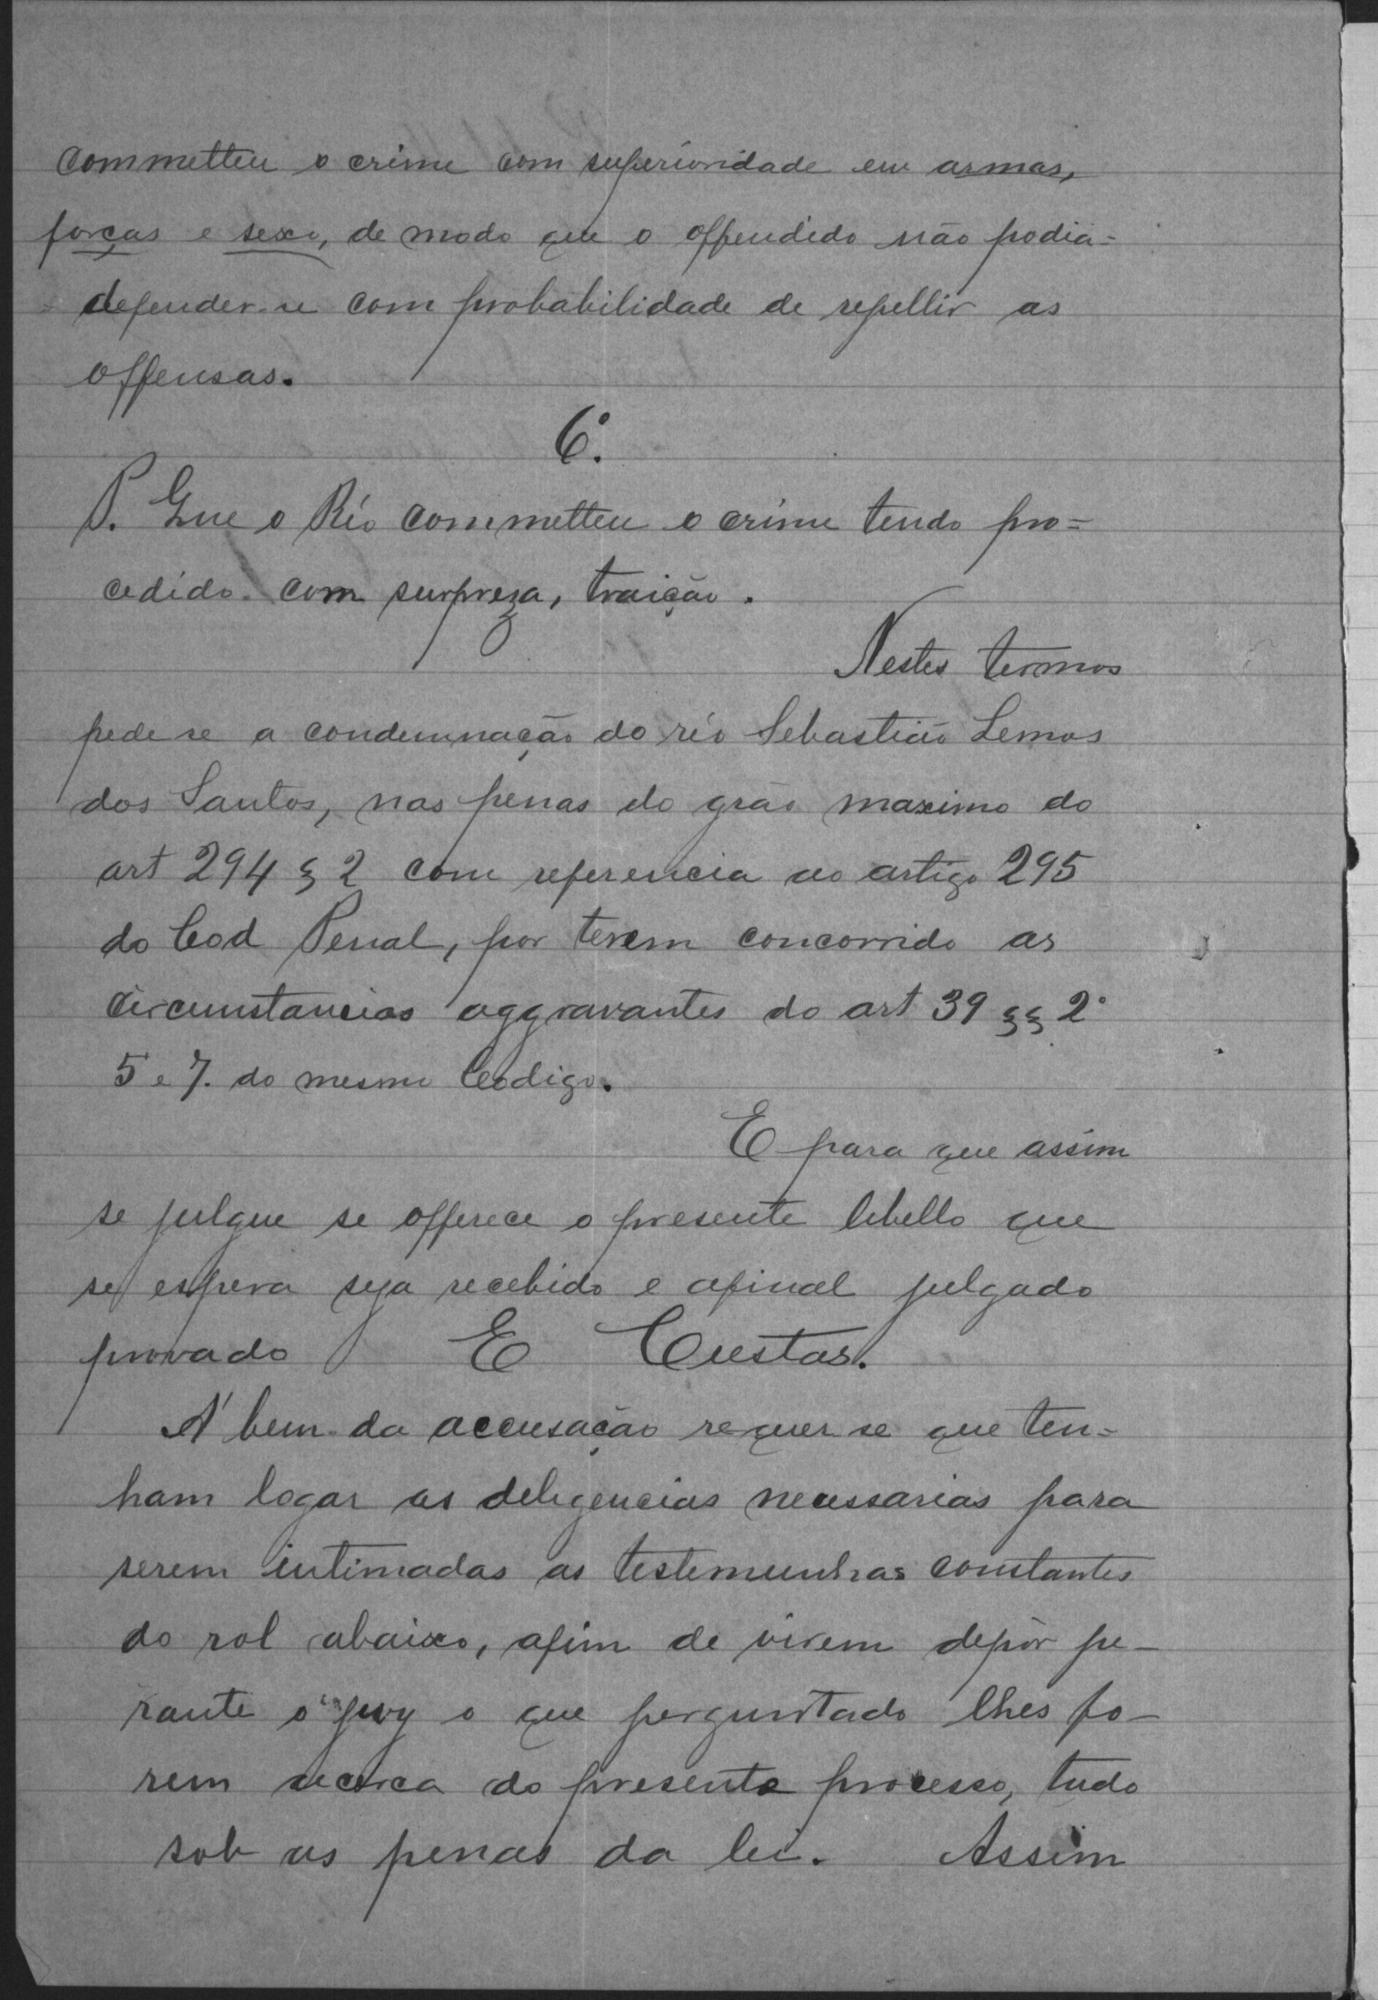 commetteu o crime com superioridade em armas,
forças e sexo, de modo que o offendido não podia=
defender-se com probabilidade de repellir as
offensas.
6º.
P. Que o Réo commetteu o crime tendo pro=
cedido com surpreza, traição.
Nestes termos
pede-se a condemnação do réo Sebastião Lemos
dos Santos, nas penas do gráo maximo do
art 294 § 2 com referencia ao artigo 295
do Cod Penal, por terem concorrido as
circumstancias aggravantes do art 39 §§ 2º
5 e 7. do mesmo Codigo.
E para que assim
se julgue se offerece o presente libello que
se espera seja recebido e afinal julgado
provado E Custas.
A' bem da accusação requer-se que ten=
ham logar as deligencias necessarias para
serem intimadas as testemunhas constantes
do rol abaixo, afim de virem depôr pe-
rante o jury o que perguntado lhes fo-
rem acerca do presente processo, tudo
sob as penas da lei. Assim